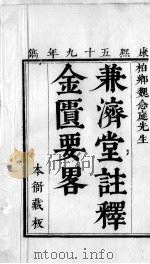 康熙五十九年鐫
柏鄉魏念庭先生
兼濟堂註釋
金匱要畧
本衙藏板
mtoou.info www.tootuu.com